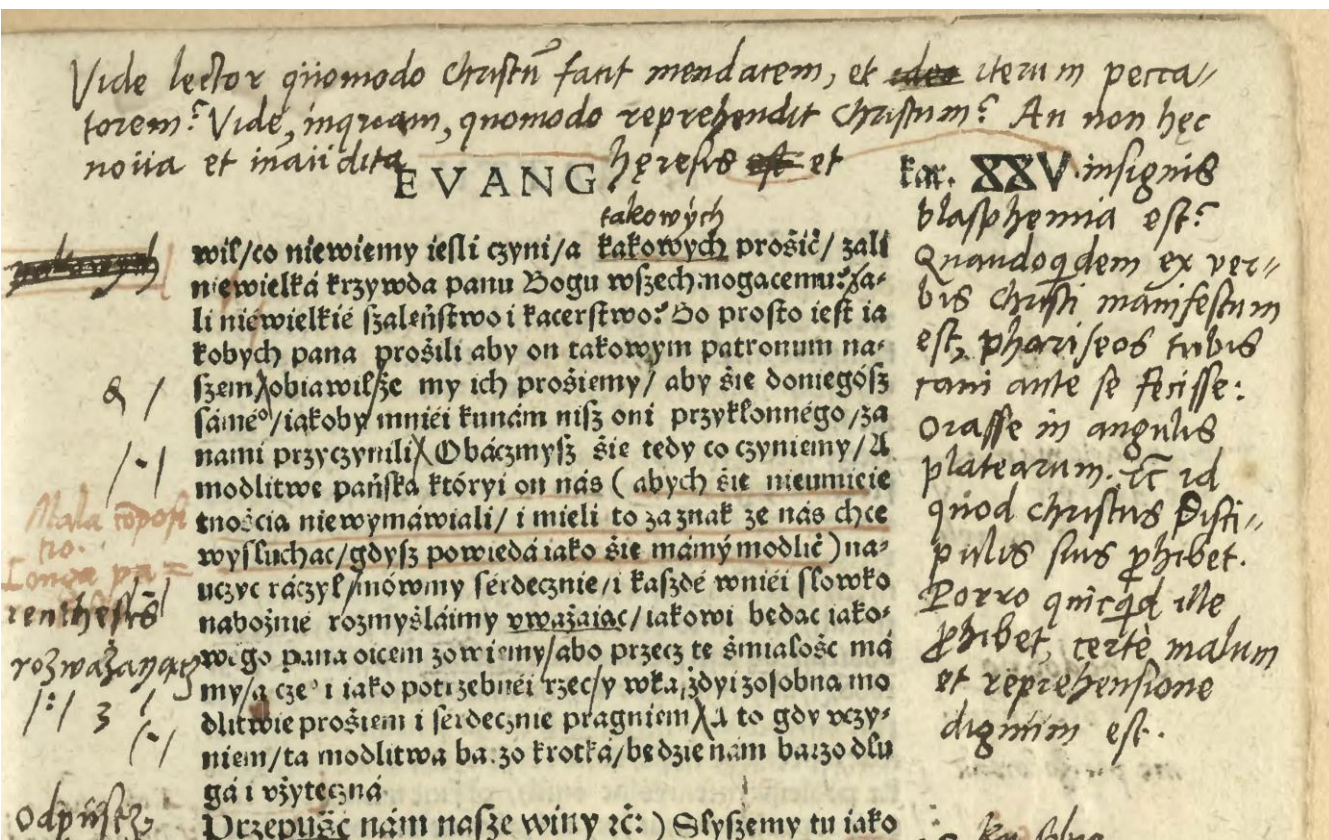 Vide lector quomodo Christū facit mendacem, et ideo iterum pecca//
torem? Vide, inquam, quomodo reprehendit Christum? An non hęc
noua et inaudita hęresis est et insignis
EVANG kar. XXV
blasphęmia est?
Quandoqdem ex ver//
bis Christi manifestum
est, phariseos tubis
cani ante se fecisse:
Orasse in angulis
platearum. ⁊c id
quod Christus Disci//
pulis suis ꝓhibet.
Porro quicqd ille
ꝓhibet, certè malum
et reprehensione
dignum est.
takowych
wil/co niewiemy iesli czyni/a kakowych prośić/ zali
niewielká krzywda panu Bogu wszech mogacemu? Za-
li niewielkié szaleństwo i kacerstwo? Bo prosto iest ia
kobych pana prośili aby on takowym patronum na-
szem obiawil/że my ich prośiemy/ aby śie doniegósz
sámeº/iakoby mniéi kunám nisz oni przykłonnégo/za
nami przyczynili Obáczmysz śie tedy co czyniemy/A
modlitwe pańska któryi on nás ( abych śie nieumieie
tnościa niewymáwiali/ i mieli to zaznak że nás chce
wysluchac/gdysz powiedá iako śie mámy modlić) na-
uczyc ráczył/mówmy sérdecznie/i kaszdé wniéi slowko
nabożnié rozmyśláimy vważaiąc/iakowi bedac iako-
wego pana oicem zowiemy/abo przecz te śmialość má
my/a cze° i iako potrzebnéi rzec/y wka,żdyi zosobna mo
dlitwie prośiem i serdecznie pragniem A to gdy vczy-
niem/ta modlitwa barzo krotka/będzie nám barzo dlu
gá i vżyteczná
Przepuść nám nasze winy ⁊c: ) Slyszemy tu iako
Mala cōposi
tio.
Longa pa=
renthesis
rozważayącz
/:/ 3 /
/-/
odpusć